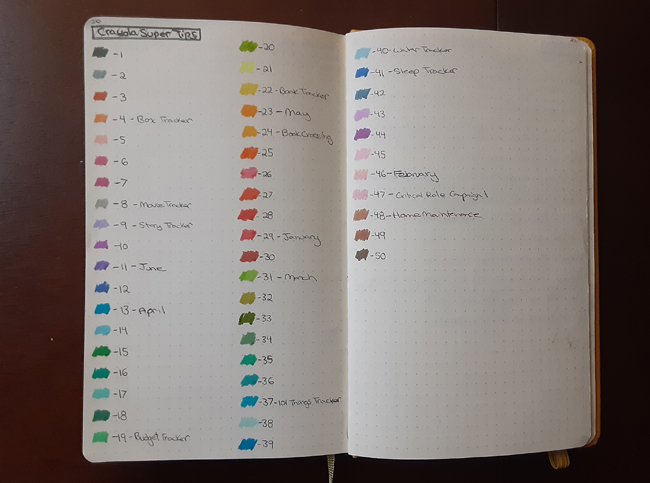 Crayola Super Tips
-1
-2
-3
-4 - Box Tracker
-5
-6
-7
-8 - Movie Tracker
-9 - Story Tracker
-10
-11 - June
-12
-13 - April
-14
-15
-16
-17
-18
-19 - Budget Tracker
-20
-21
-22 - Book Tracker
-23 - May
-24 - Book Crossing
-25
-26
-27
-28
-29 - January
-30
-31 - March
-32
-33
-34
-35
-36
-37 - 101 Things Tracker
-38
-39
-40 - Water Tracker
-41 - Sleep Tracker
-42
-43
-44
-45
-46 - February
-47 - Critical Role Campaign 1
-48 - Home Maintenence
-49
-50